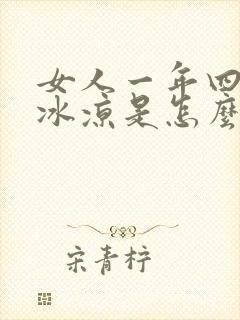 女人一年四
冰凉是怎麽
宋青柠